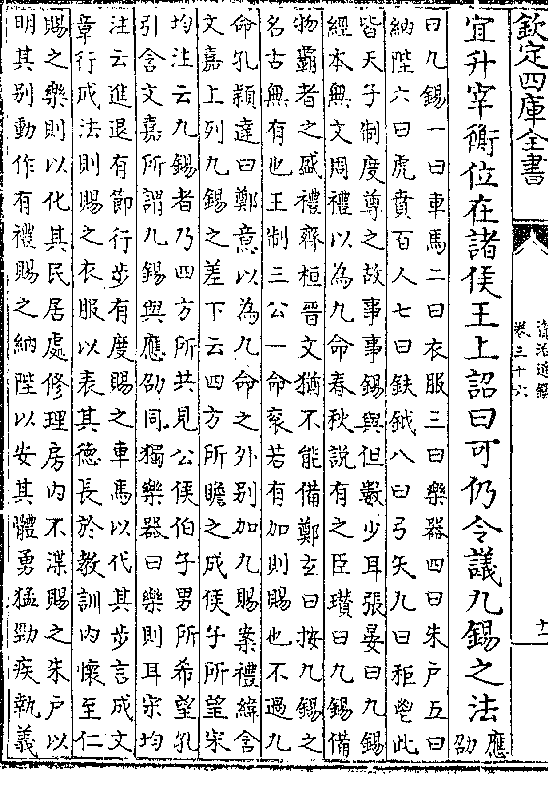 欽定四庫全書
資治通鑑
卷三十六
十二
宜升宰衡位在諸侯王上詔曰可仍令議九錫之法應劭
曰九錫一曰車馬二曰衣服三曰樂器四曰朱戶五曰
納陛六曰虎賁百人七曰鈇鉞八曰弓矢九曰秬鬯此
皆天子制度尊之故事事錫與但數少耳張晏曰九錫
經本無文周禮以為九命春秋說有之臣瓚曰九錫備
物霸者之盛禮齊桓晉文猶不能備鄭玄曰按九錫之
名古無有也王制三公一命袞若有加則賜也不過九
命孔穎達曰鄭意以為九命之外别加九賜案禮緯含
文嘉上列九錫之差下云四方所瞻之成侯子所望宋
均注云九錫者乃四方所共見公侯伯子男所希望孔
引含文嘉所謂九錫與應劭同獨樂器曰樂則耳宋均
注云進退有節行步有度賜之車馬以代其步言成文
章行成法則賜之衣服以表其德長於教訓内懷至仁
賜之樂則以化其民居處修理房内不渫賜之朱戶以
明其别動作有禮賜之納陛以安其體勇猛勁疾執義